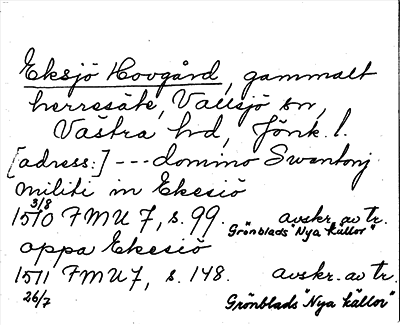 Eksjö Hovgård, gammalt
herresäte, Vallsjö sn,
Västra hd, Jönk. l.
[adress:] --- domino Swantonj
militi in Ekesiö
3/8
1510 FMU 7, s. 99. avskr. av tr.
Grönblads "Nya källor"
oppa Ekesiö
1511 FMU 7, s. 148. avskr. av tr.
26/7 Grönblads "Nya källor"